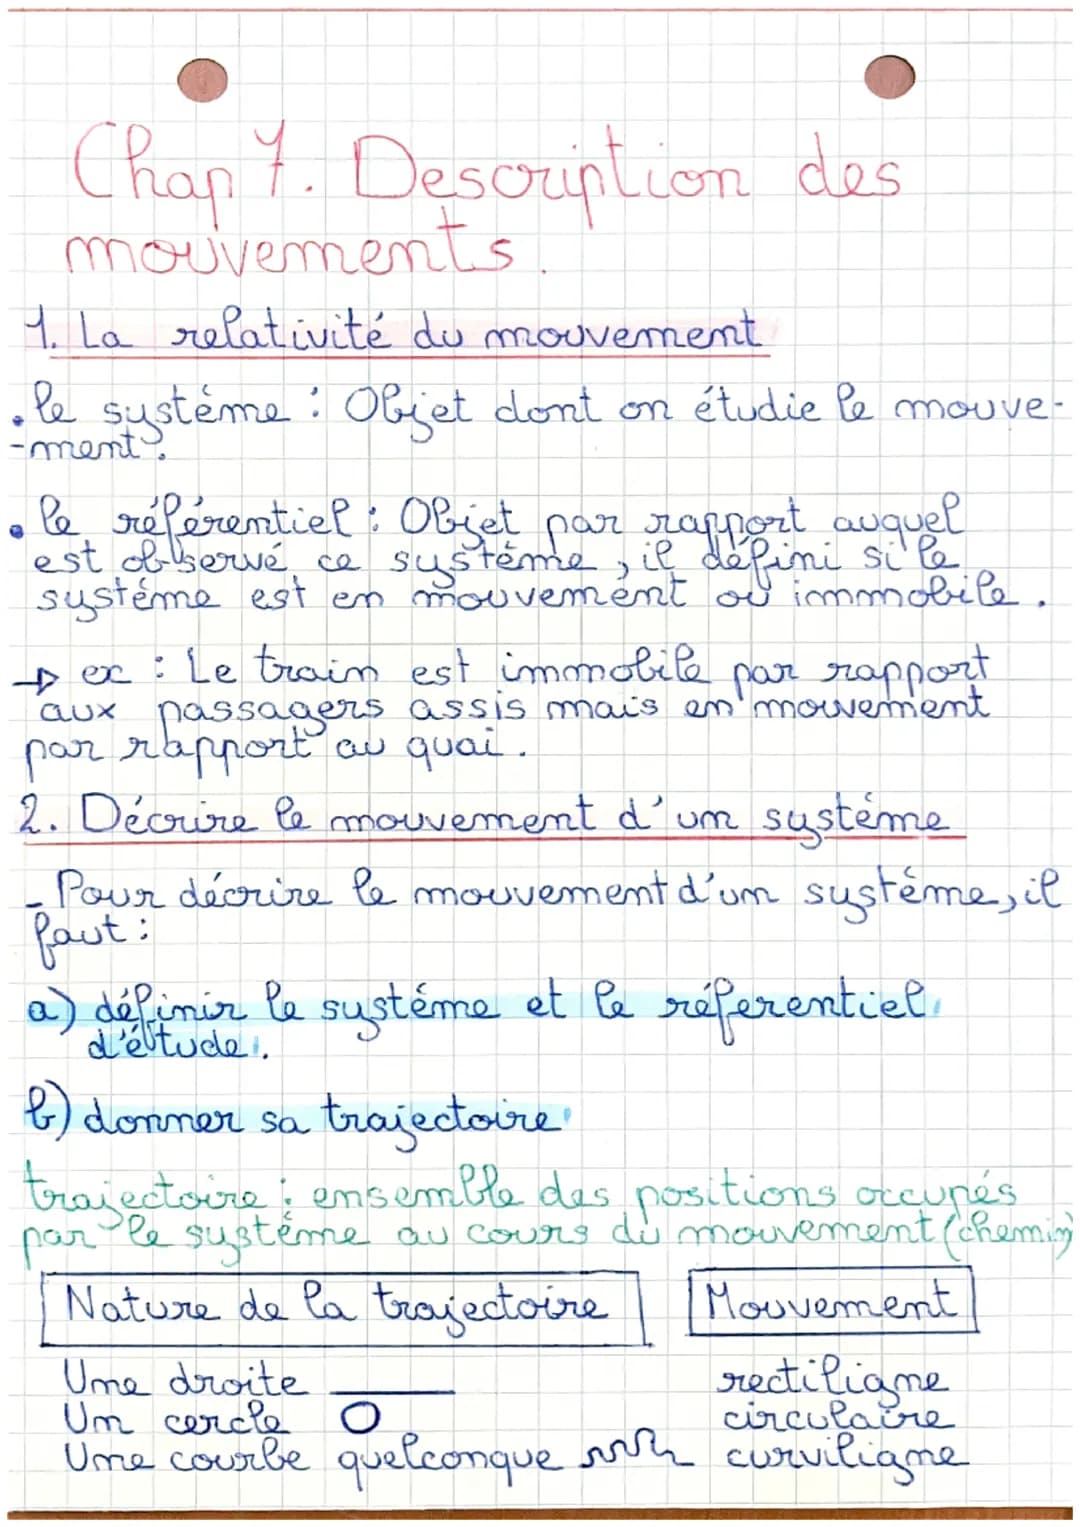 Chap 7. Description des
mouvements.
1. La relativité du mouvement
• le système : Objet dont on étudie le mouve-
-ment.
• le référentiel : Objet par rapport auquel
est observé ce système, il défini si le
système est en mouvement ou immobile.
→ ex : Le train est immobile par rapport
aux passagers assis mais en mouvement
par rapport au quai.
2. Décrire le mouvement d'un système
- Pour décrire le mouvement d'un système, il
faut :
a) définir le système et le réferentiel
d'étude.
b) donner sa trajectoire
trajectoire : ensemble des positions occupés
par le système au cours du mouvement (chemin)
Nature de la trajectoire Mouvement
Une droite rectiligne
Un cercle circulaire
Une courbe quelconque curviligne